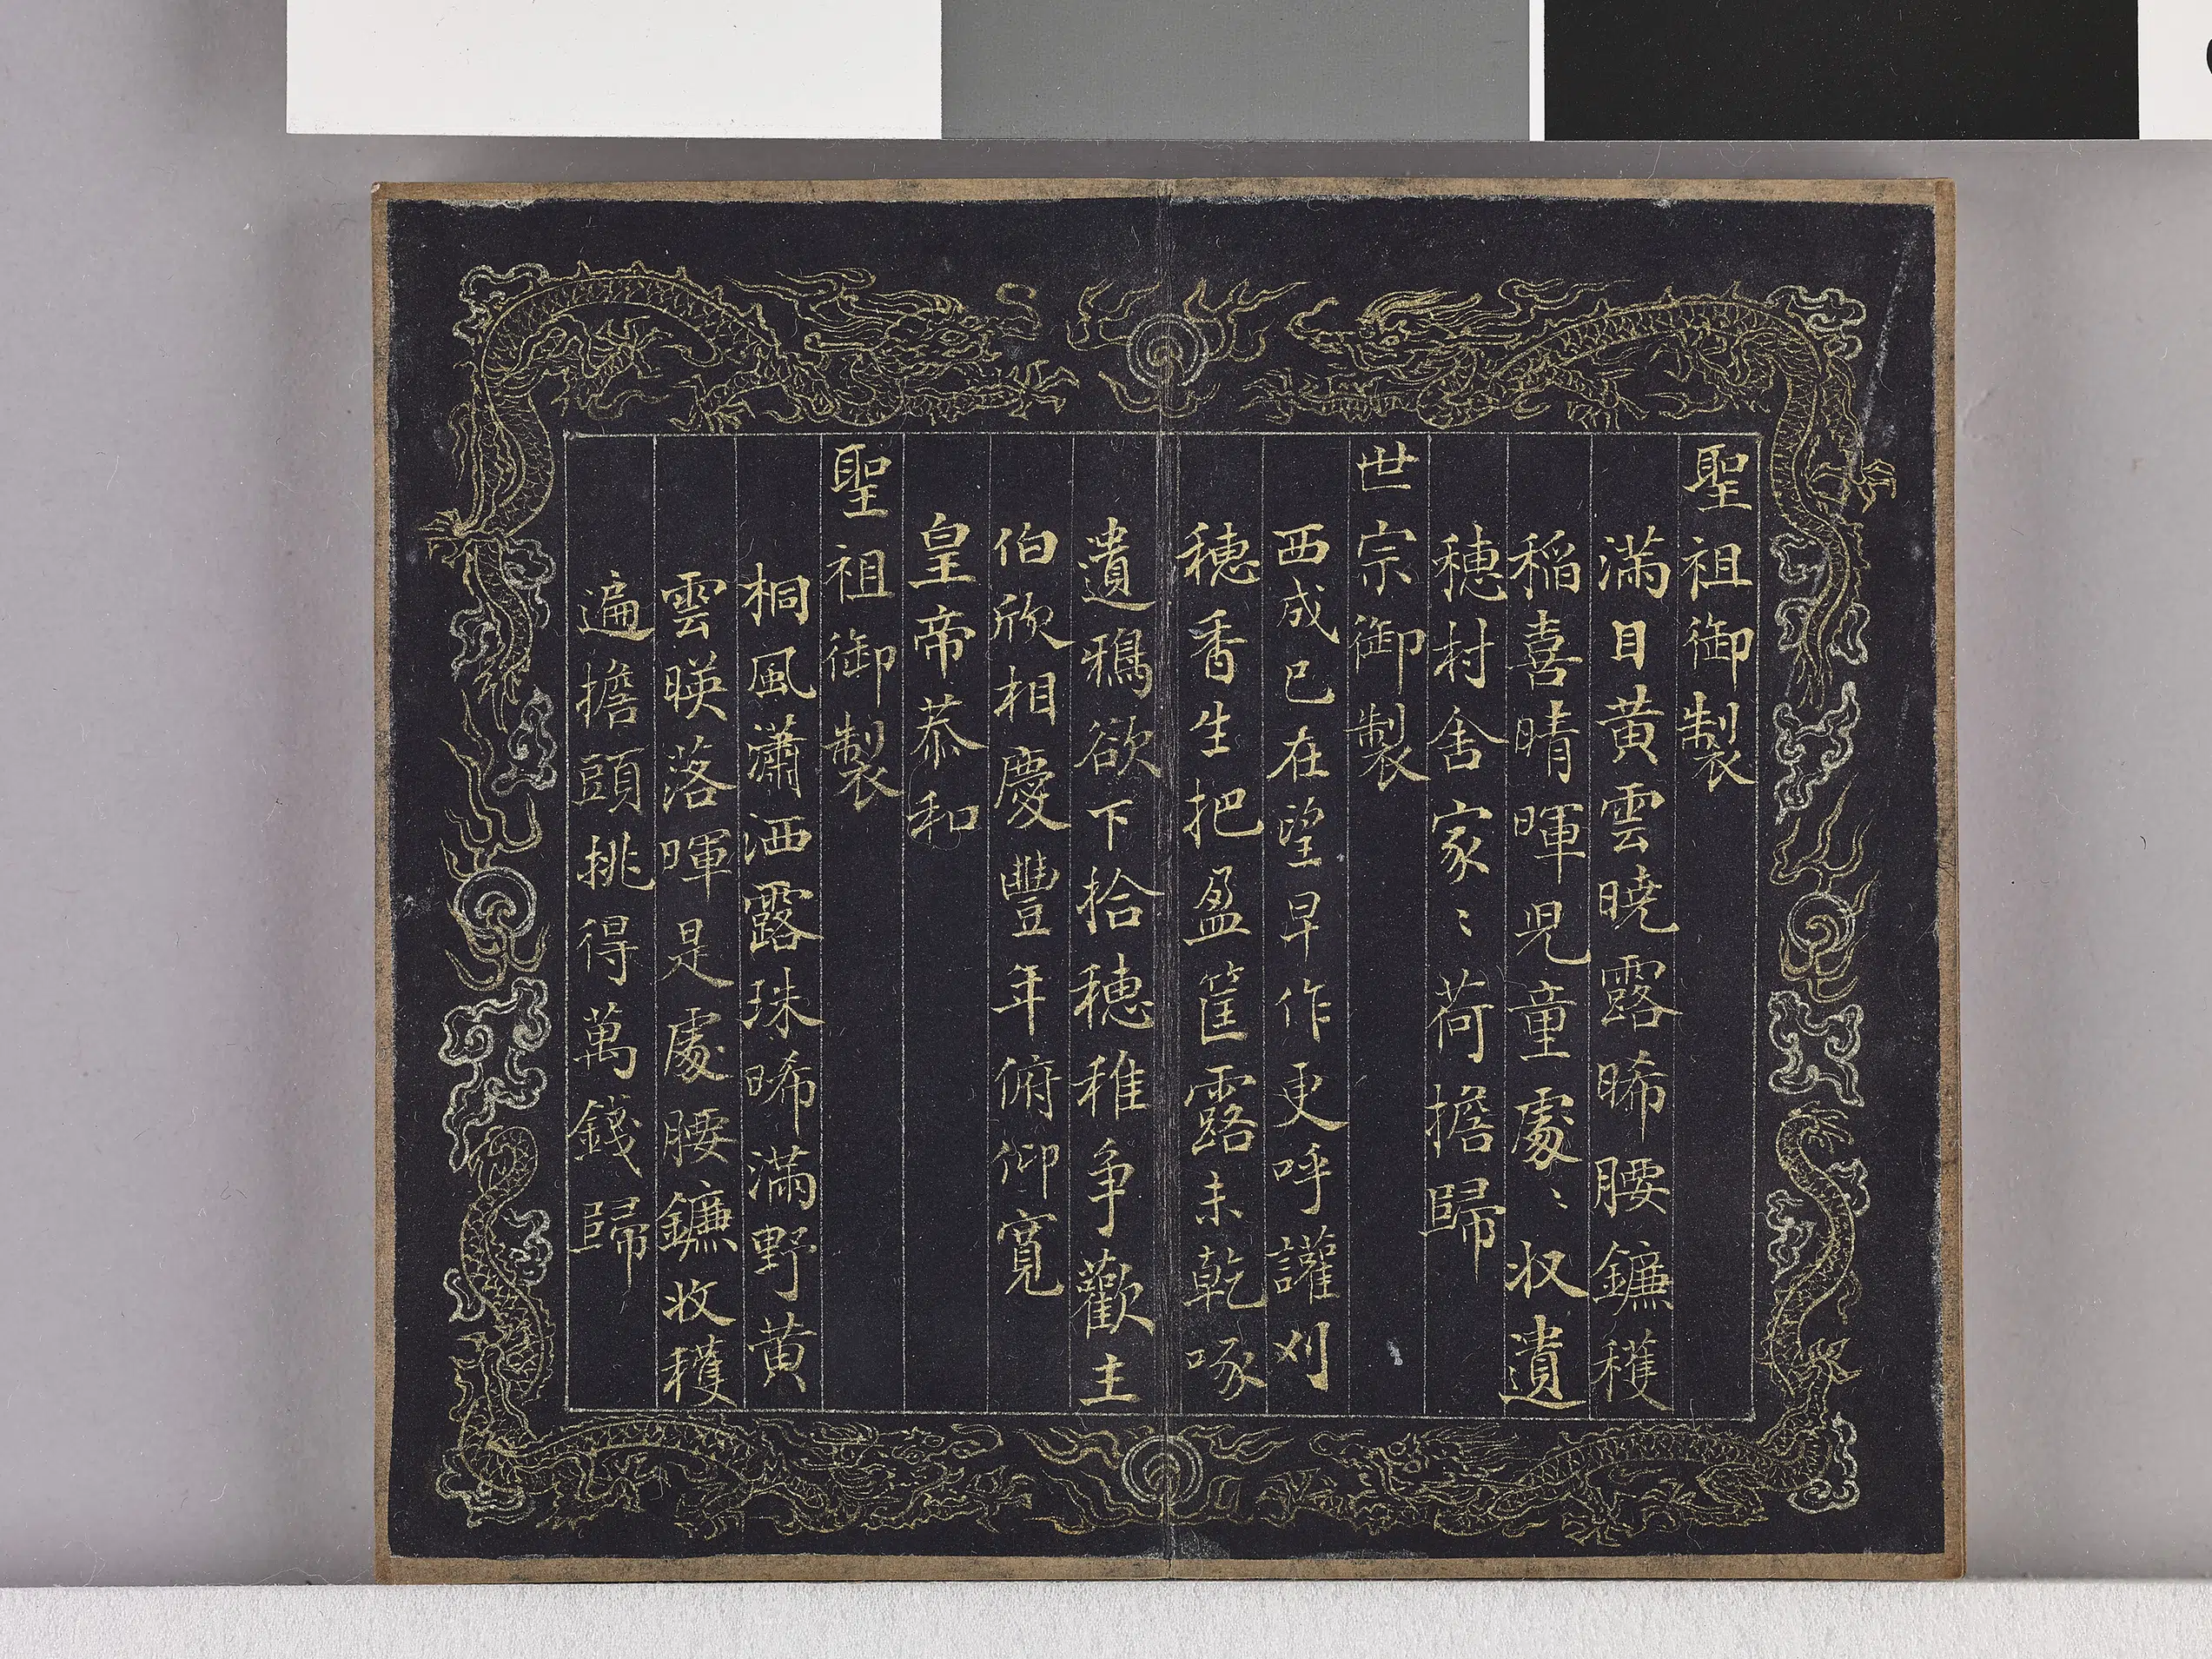 聖祖御製
滿目黃雲曉露晞腰鐮穫
稻喜晴暉兒童處〻収遺
穗村舍家〻荷擔歸
世宗御製
西成已在望早作更呼讙刈
穗香生把盈筐露未乾啄
遺鴉欲下拾穗稚争歡主
伯欣相慶豐年俯仰寬
皇帝恭和
聖祖御製
桐風瀟洒露珠晞滿野黃
雲暎落暉是處腰鐮收穫
遍擔頭挑得萬錢歸